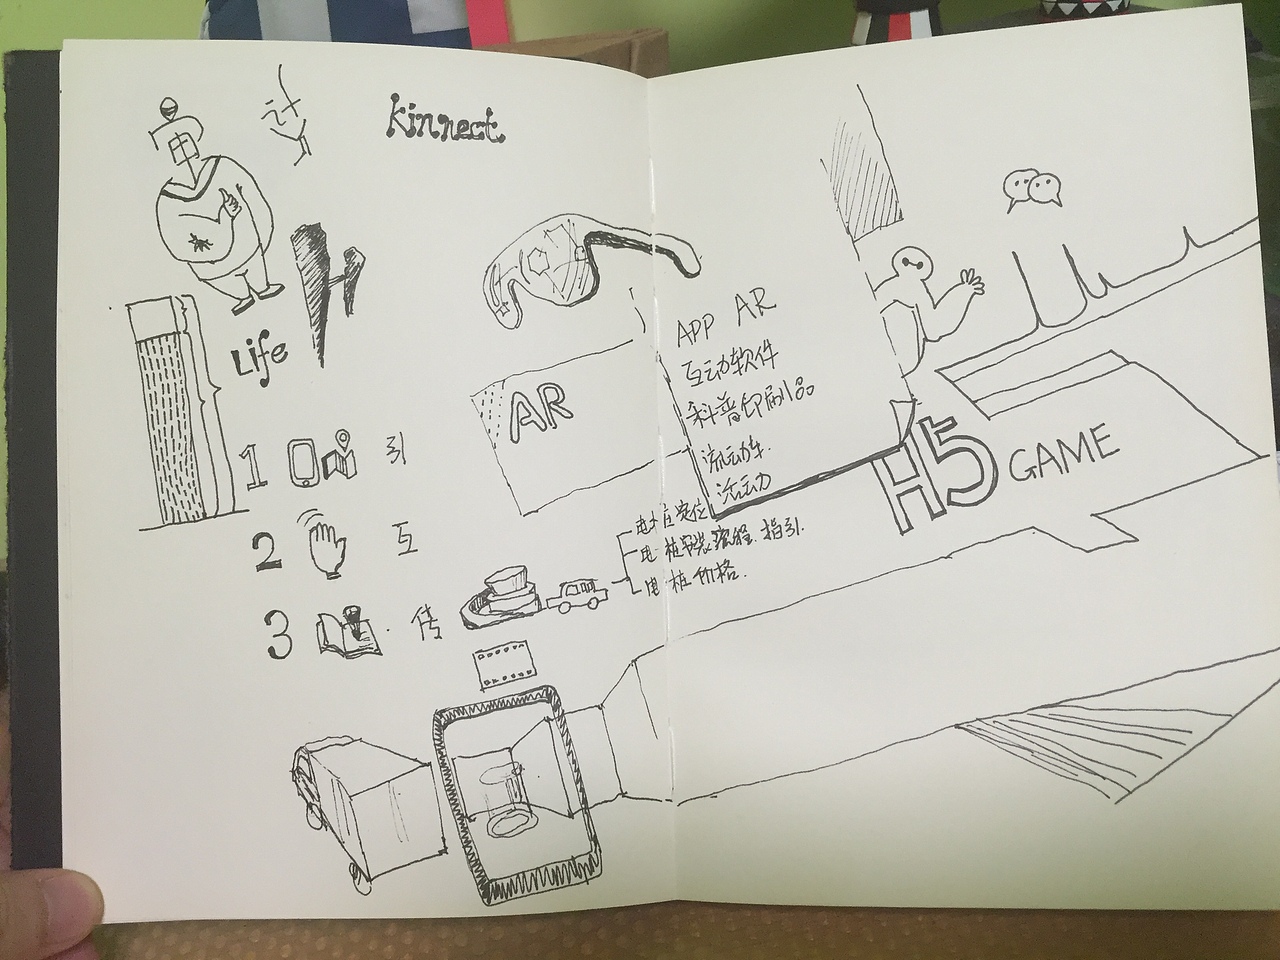 计
kinnect.
Life
AR
1 引
2 互
3 传
APP AR
互动软件
科普印刷品
流动车.
流动
电桩定位
电桩安装流程.指引.
电桩价格.
H5 GAME